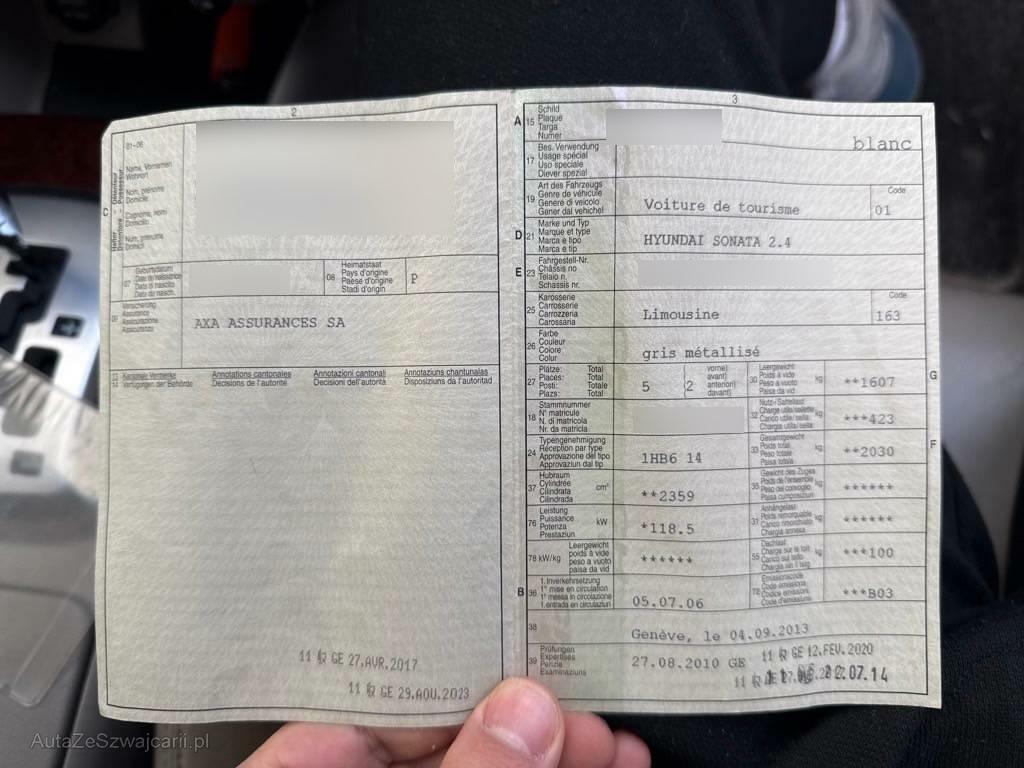 2
01-06
Name, Vornamen
Wohnort
Nom, prénoms
Domicile
Cognome, nomi
Domicilio
Num, prenums
Domicil
C
Halter - Détenteur
Detentore - Possessur
07
Geburtsdatum
Date de naissance
Data di nascita
Data da nasch.
08
Heimatstaat
Pays d'origine
Paese d'origine
Stadi d'origin
P
09
Versicherung
Assurance
Assicurazione
Assicuranza
AXA ASSURANCES SA
13 Kantonale Vermerke
14 Verfügungen der Behörde
Annotations cantonales
Décisions de l'autorité
Annotazioni cantonali
Decisioni dell'autorità
Annotaziuns chantunalas
Disposiziuns da l'autoritad
11 R GE 27.AVR.2017
11 R GE 29.AOU.2023
3
A 15
Schild
Plaque
Targa
Numer
blanc
17
Bes. Verwendung
Usage spécial
Uso speciale
Diever spezial
19
Art des Fahrzeugs
Genre de véhicule
Genere di veicolo
Gener dal vehichel
Voiture de tourisme
Code
01
D 21
Marke und Typ
Marque et type
Marca e tipo
Marca e tip
HYUNDAI SONATA 2.4
E 23
Fahrgestell-Nr.
Châssis no
Telaio n.
Schassis nr.
25
Karosserie
Carrosserie
Carrozzeria
Carossaria
Limousine
Code
163
26
Farbe
Couleur
Colore
Colur
gris métallisé
27
Plätze: Total
Places: Total
Posti: Totale
Plazs: Total
5
(2
vorne)
avant)
anteriori)
davant)
30
Leergewicht
Poids à vide
Peso a vuoto
Paisa da vid
kg
**1607
G
18
Stammnummer
N° matricule
N. di matricola
Nr. da matricla
32
Nutz-/Sattellast
Charge utile/sellette
Carico utile/sella
Chargia utila/sella
kg
***423
24
Typengenehmigung
Réception par type
Approvazione del tipo
Approvaziun dal tip
1HB6 14
33
Gesamtgewicht
Poids total
Peso totale
Paisa totala
kg
**2030
F
37
Hubraum
Cylindrée
Cilindrata
Cilindrada
cm³
**2359
35
Gewicht des Zuges
Poids de l'ensemble
Peso del convoglio
Paisa cumposiziun
kg
******
76
Leistung
Puissance
Potenza
Prestaziun
kW
*118.5
31
Anhängelast
Poids remorquable
Carico rimorchiato
Chargia annexa
kg
******
78 kW/kg
Leergewicht
poids à vide
peso a vuoto
paisa da vid
******
55
Dachlast
Charge sur le toit
Carico sul tetto
Chargia sin il tetg
kg
***100
B 36
1. Inverkehrsetzung
1re mise en circulation
1a messa in circolazione
1. entrada en circulaziun
05.07.06
72
Emissionscode
Code émissions
Codice emissioni
Code d'emissiuns
***B03
38
Genève, le 04.09.2013
39
Prüfungen
Expertises
Perizie
Examinaziuns
27.08.2010 GE
11 R GE 12.FEV.2020
07.14
AutaZeSzwajcarii.pl